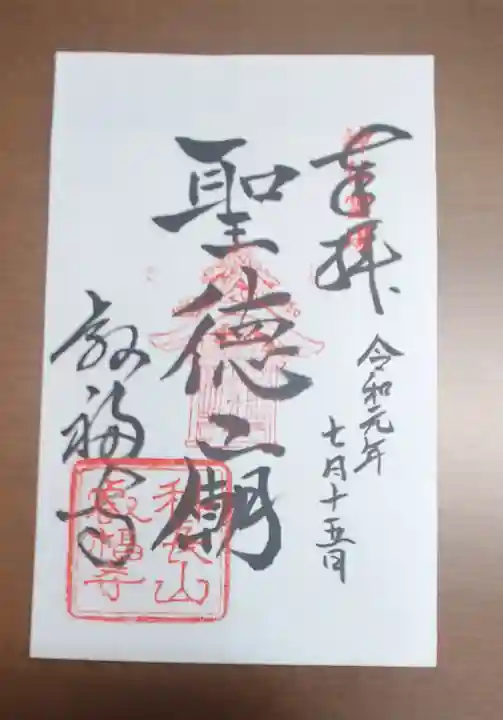 奉拝
令和元年
七月十五日
聖徳廟
叡福寺
磯長山
叡福寺